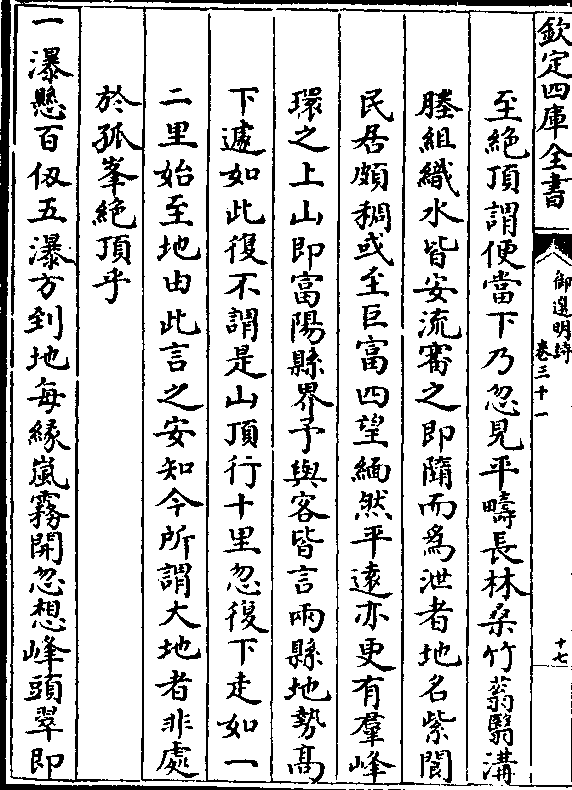 欽定四庫全書
御選明詩
卷三十一
十七
至絕頂謂便當下乃忽見平疇長林桑竹蓊翳溝
塍組織水皆安流審之即隨而為泄者地名紫閬
民居頗稠或至巨富四望緬然平遠亦更有羣峰
環之上山即富陽縣界予與客皆言兩縣地勢髙
下遽如此復不謂是山頂行十里忽復下走如一
二里始至地由此言之安知今所謂大地者非處
於孤峯絕頂乎
一瀑懸百仭五瀑方到地每緣嵐霧開忽想峰頭翠即